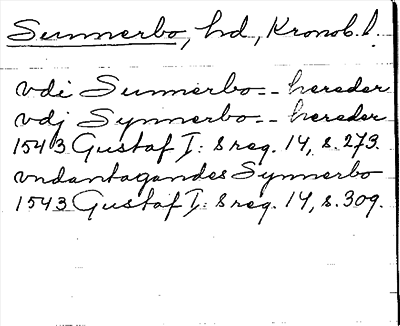 Sunnerbo, hd, Kronob. l.
vdi Sunnerbo -- hereder
vdj Synnerbo -- hereder
1543 Gustaf I: s reg. 14, s. 273.
vndantagandes Synnerbo
1543 Gustaf I: s reg. 14, s. 309.